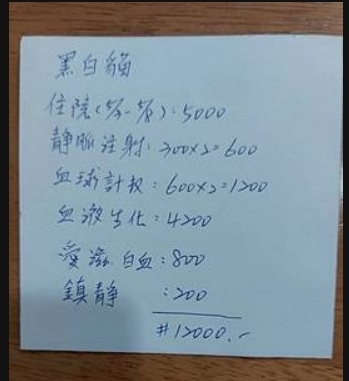 黑白貓
住院(5/3-5/8):5000
靜脈注射:300x2=600
血球計數:600x2=1200
血液生化:4200
愛滋白血:800
鎮靜:200
#12000.-